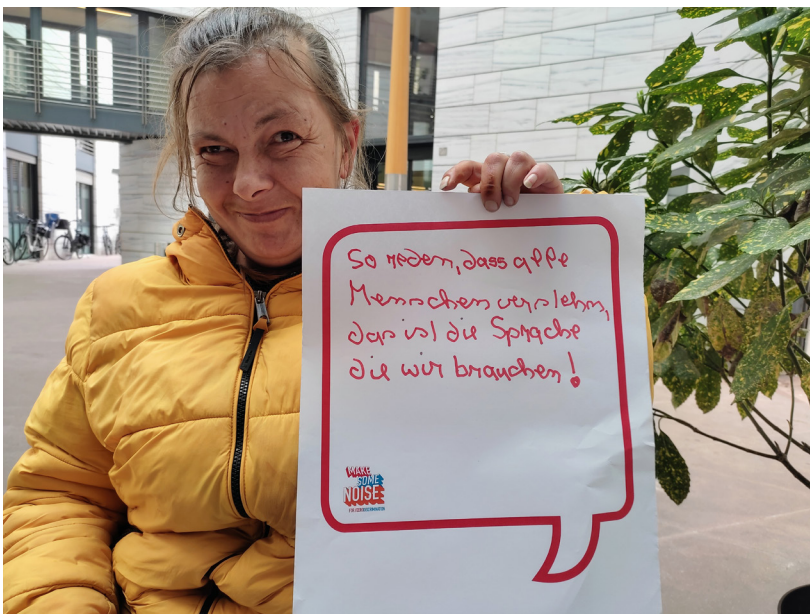 So reden, dass alle
Menschen verstehn,
das ist die Sprache
die wir brauchen!
MAKE
SOME
NOISE